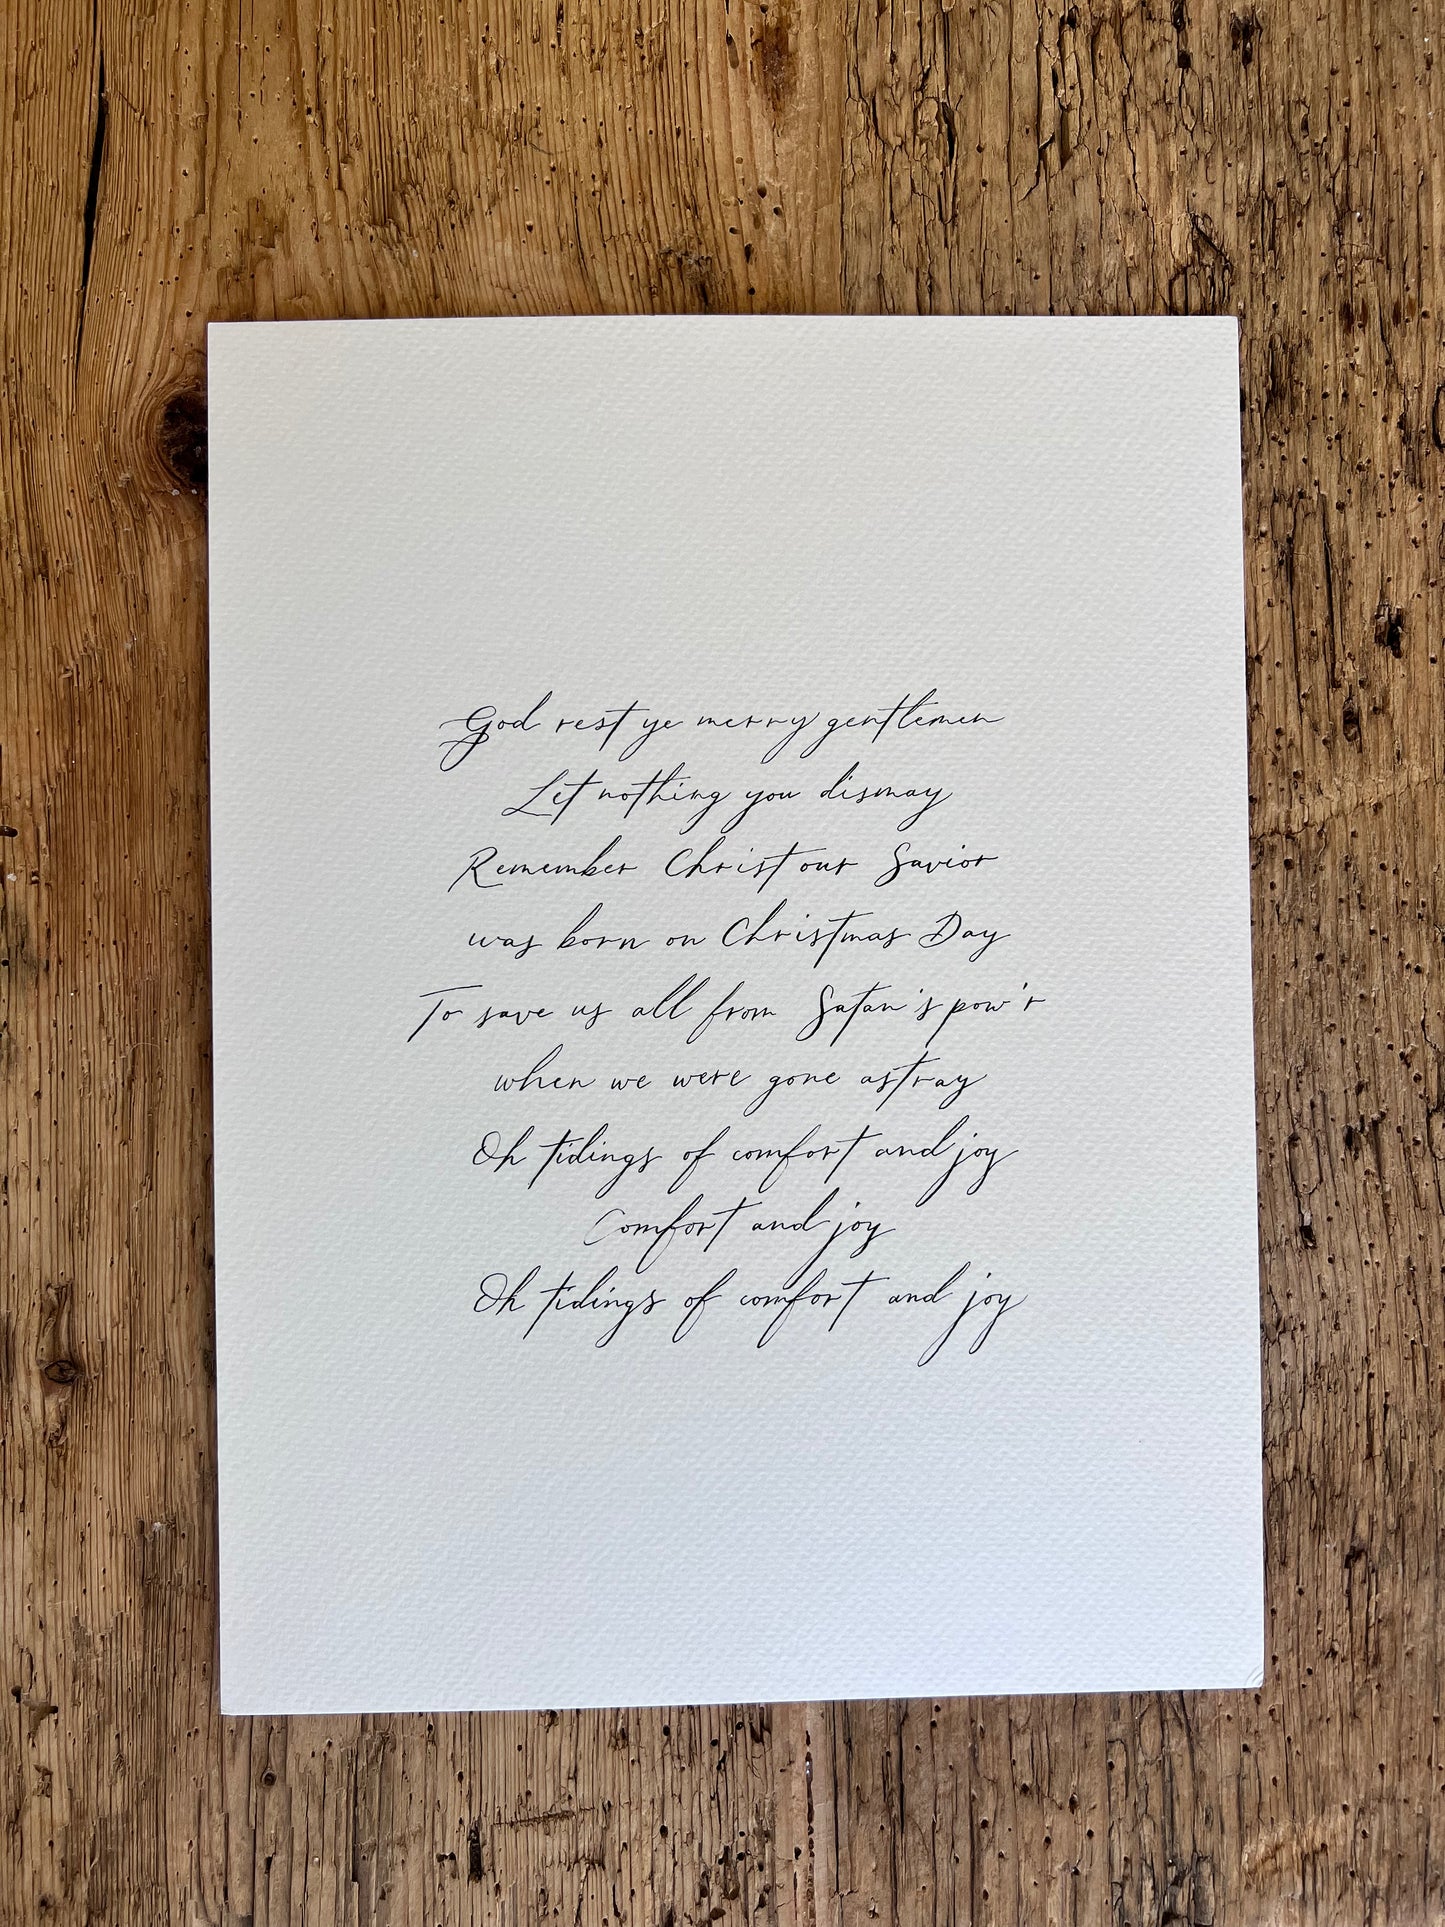 God rest ye merry gentlemen
Let nothing you dismay
Remember Christ our Savior
was born on Christmas Day
To save us all from Satan's pow'r
when we were gone astray
Oh tidings of comfort and joy
Comfort and joy
Oh tidings of comfort and joy